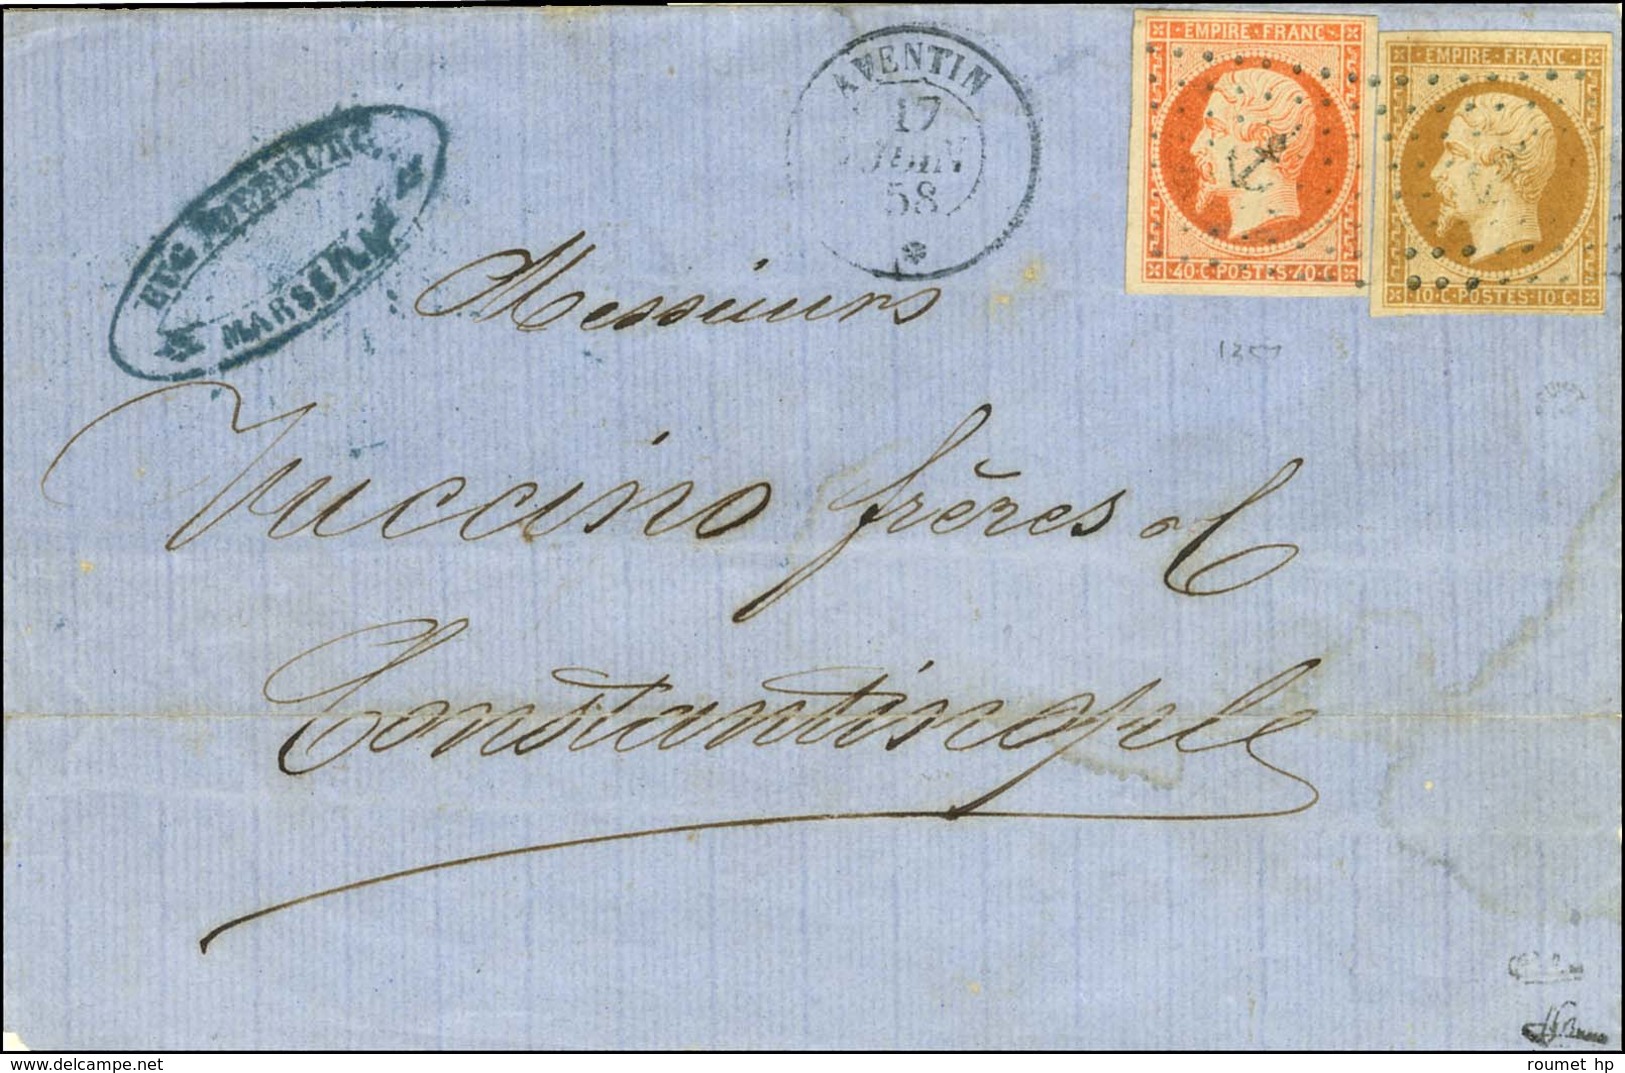 EMPIRE · FRANC
40·C·POSTES·40·C
EMPIRE · FRANC
10·C·POSTES·10·C
AVENTIN
17
JUIN
58
MARSEILLE
Messieurs
Vuccino frères & C
Constantinople
roumet hp